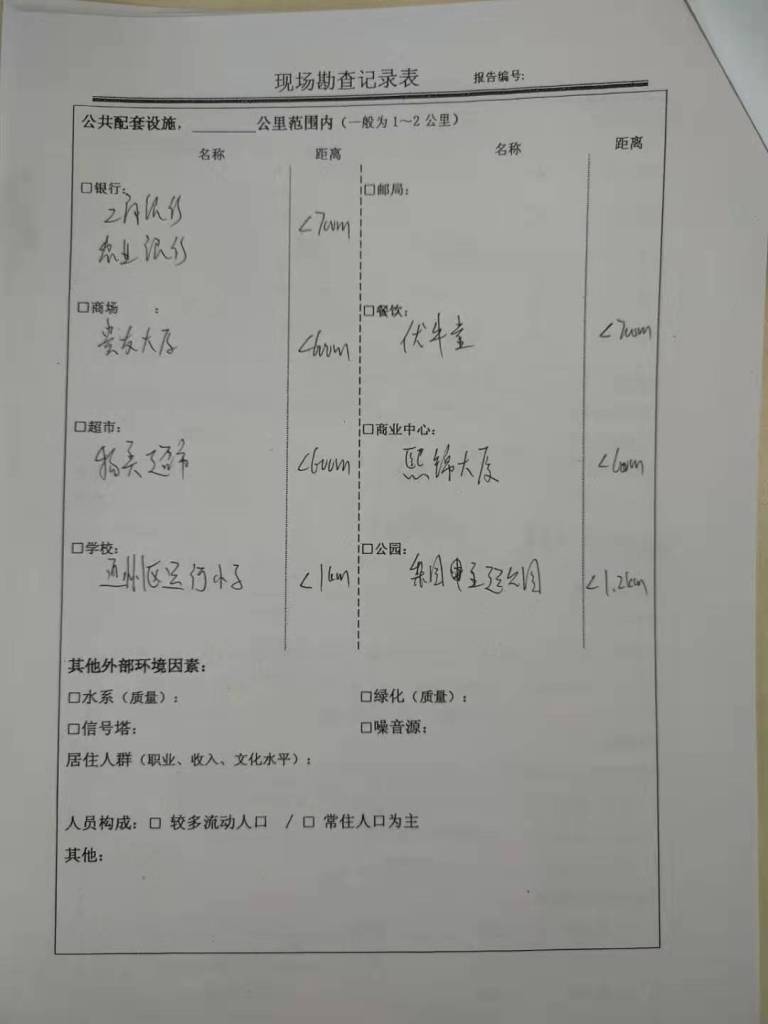 现场勘查记录表 报告编号:
公共配套设施，______公里范围内（一般为1～2公里）
名称 距离 名称 距离
□银行: □邮局:
工商银行 <700m
农业银行
□商场 : □餐饮:
贵友大厦 <600m 伏牛堂 <700m
□超市: □商业中心:
物美超市 <600m 熙锦大厦 <600m
□学校: □公园:
通州区运河小学 <1km 梨园主题公园 <1.2km
其他外部环境因素:
□水系（质量）: □绿化（质量）:
□信号塔: □噪音源:
居住人群（职业、收入、文化水平）:
人员构成: □ 较多流动人口 / □ 常住人口为主
其他: